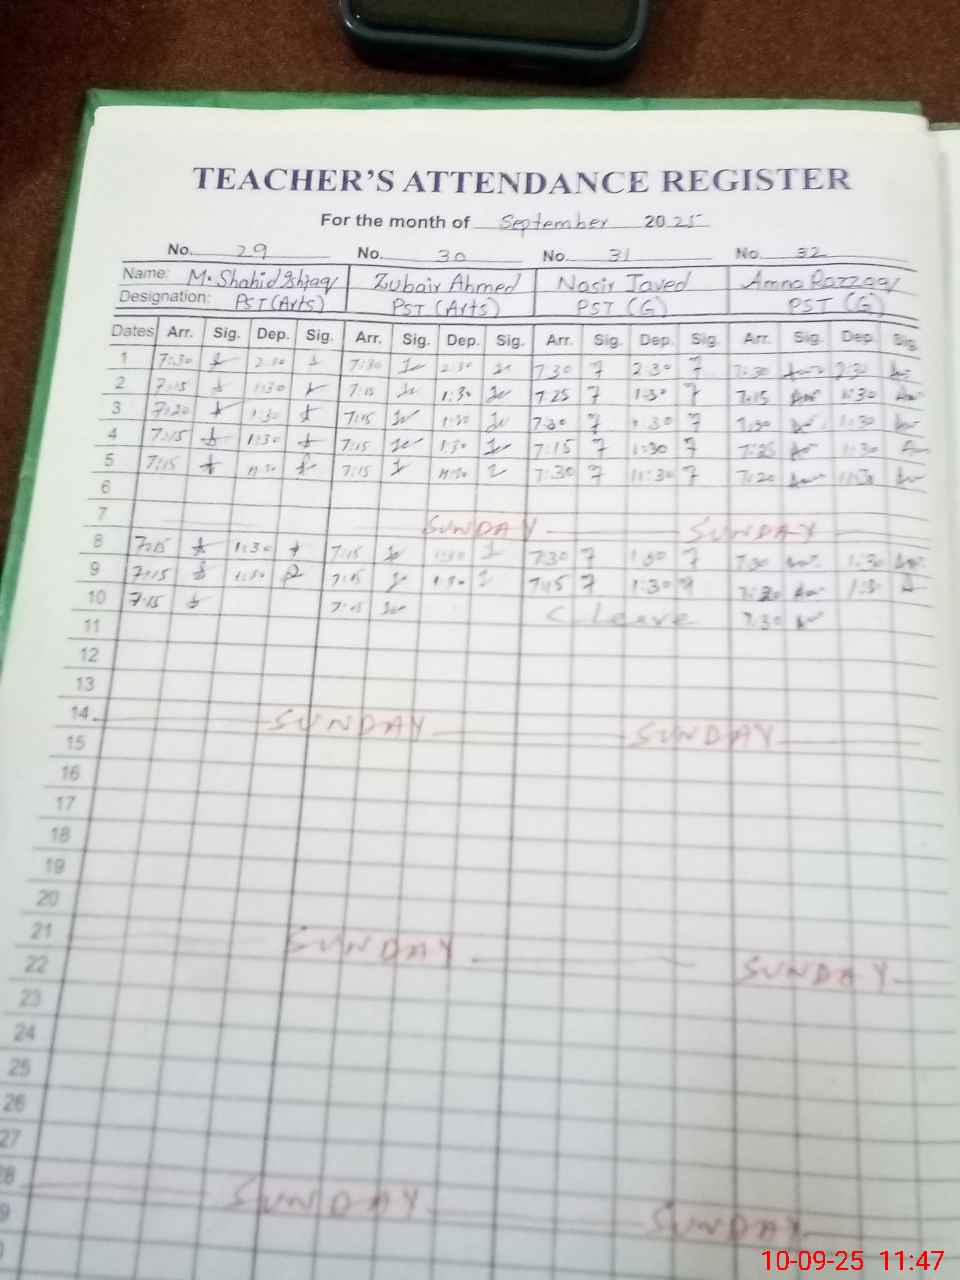 TEACHER'S ATTENDANCE REGISTER
For the month of September 2025
No. 29 No. 30 No. 31 No. 32
Name: M. Shahid Ishfaq Zubair Ahmed Nasir Javed Amna Razzaq
Designation: PST (Arts) PST (Arts) PST (G) PST (G)
Dates Arr. Sig. Dep. Sig. Arr. Sig. Dep. Sig. Arr. Sig. Dep. Sig. Arr. Sig. Dep. Sig.
1 7:30 2:30 7:30 2:30 7:30 2:30 7:30 2:30
2 7:15 1:30 7:15 1:30 7:25 1:30 7:15 1:30
3 7:20 1:30 7:15 1:30 7:20 1:30 1:30
4 7:15 1:30 7:15 1:30 7:15 1:30 7:25 1:30
5 7:15 11:30 7:15 11:30 7:30 11:30 7:20 11:30
6
7 SUNDAY SUNDAY
8 7:15 1:30 7:15 1:30 7:30 1:30 7:30 1:30
9 7:15 1:30 7:15 1:30 7:15 1:30 1:30
10 7:15 7:15 C Leave 7:30
11
12
13
14 SUNDAY SUNDAY
15
16
17
18
19
20
21 SUNDAY
22 SUNDAY
23
24
25
26
27
28 SUNDAY
9 SUNDAY
10-09-25 11:47